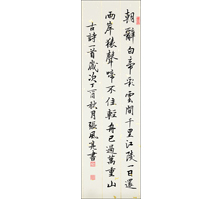 朝辭白帝彩雲間千里江陵一日還
兩岸猿聲啼不住輕舟已過萬重山
古詩一首歲次丁酉秋月張書